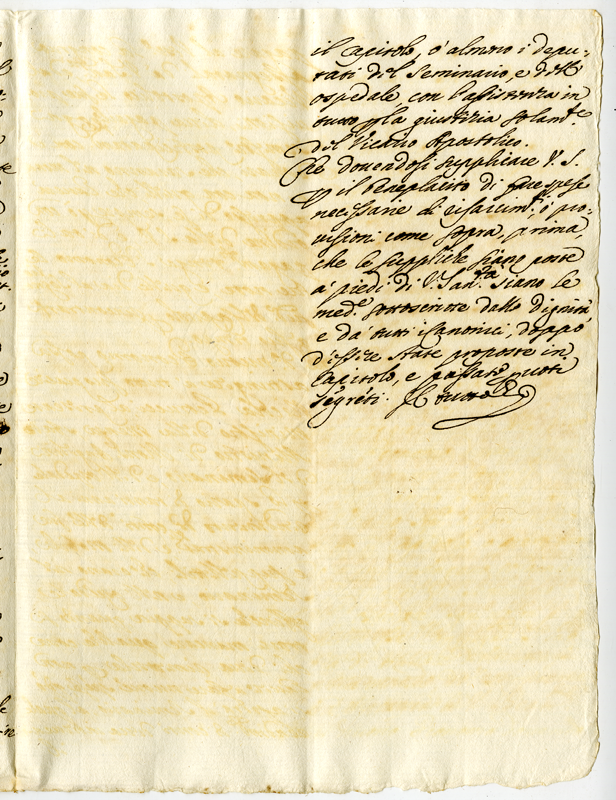 il Capitolo, ò almeno i depu-
tati del Seminario, e dell'
ospedale con l'assistenza in
tutto p la giustizia solamte
del Vicario Apostolico.
Che dovendosi supplicare V. S.
p il Beneplacito di far spese
necessarie di risarcimti, ò pro-
visioni come sopra, prima
che le suppliche siano poste
à piedi di V. Santa siano le
mede sottoscritte dalle Dignità
e dà tutti i Canonici, doppo
d'essere state proposte in
Capitolo, e passate p voti
segreti. Il tutto